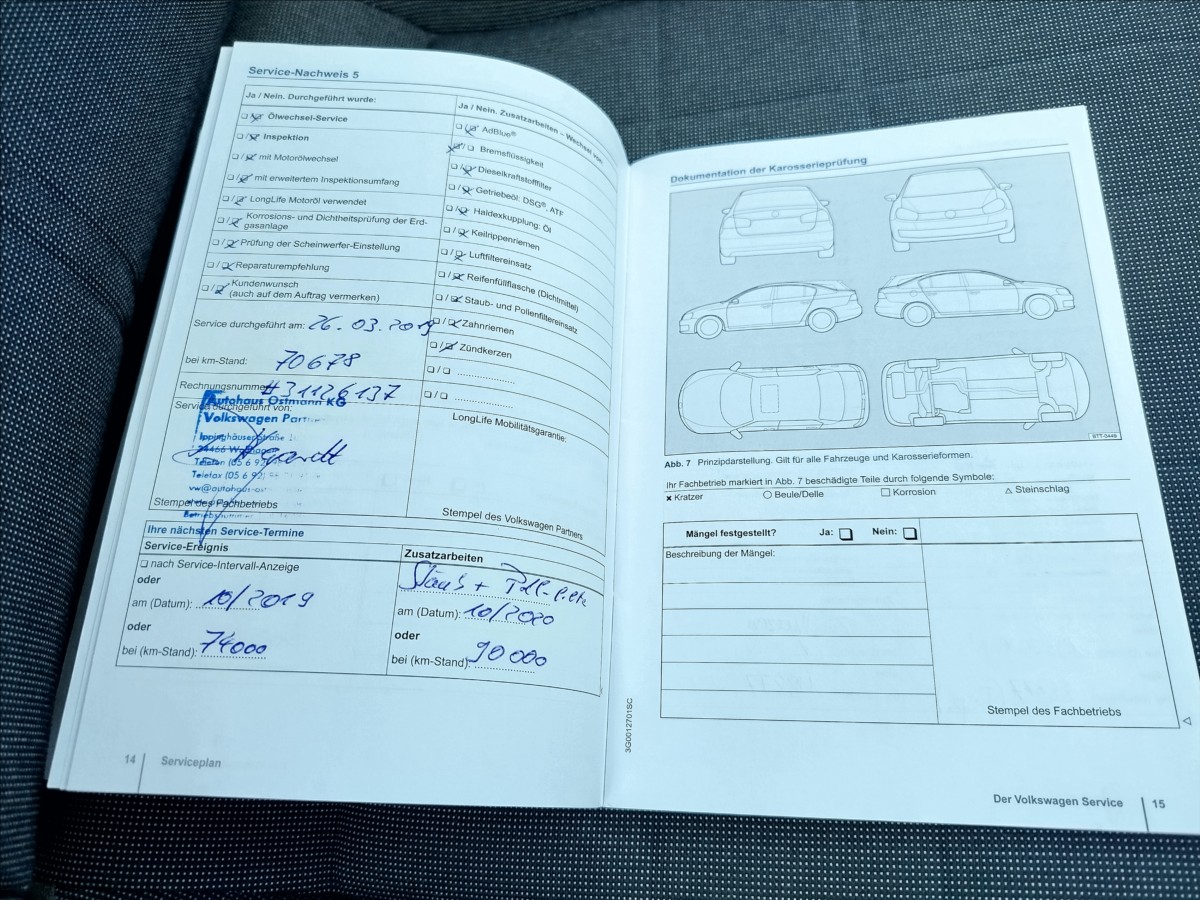 Service-Nachweis 5
Ja / Nein. Durchgeführt wurde:
Ölwechsel-Service
Inspektion
mit Motorölwechsel
mit erweitertem Inspektionsumfang
LongLife Motoröl verwendet
Korrosions- und Dichtheitsprüfung der Erd-
gasanlage
Prüfung der Scheinwerfer-Einstellung
Reparaturempfehlung
Kundenwunsch
(auch auf dem Auftrag vermerken)
Service durchgeführt am: 26.03.2019
bei km-Stand: 70678
Rechnungsnummer #31126137
Service durchgeführt von:
Autohaus Ostmann KG
Volkswagen Partner
Ippinghäuser Straße
Telefon (05 6 92)
Telefax (05 6 92)
Stempel des Fachbetriebs
Ja / Nein. Zusatzarbeiten – Wechsel von:
AdBlue®
Bremsflüssigkeit
Dieselkraftstofffilter
Getriebeöl: DSG®, ATF
Haldexkupplung: Öl
Keilrippenriemen
Luftfiltereinsatz
Reifenfüllflasche (Dichtmittel)
Staub- und Pollenfiltereinsatz
Zahnriemen
Zündkerzen
LongLife Mobilitätsgarantie:
Stempel des Volkswagen Partners
Ihre nächsten Service-Termine
Service-Ereignis
nach Service-Intervall-Anzeige
oder
am (Datum): 10/2019
oder
bei (km-Stand): 74000
Zusatzarbeiten
Staub +
am (Datum): 10/2020
oder
bei (km-Stand): 90 000
14 Serviceplan
Dokumentation der Karosserieprüfung
BTT-0449
Abb. 7 Prinzipdarstellung. Gilt für alle Fahrzeuge und Karosserieformen.
Ihr Fachbetrieb markiert in Abb. 7 beschädigte Teile durch folgende Symbole:
× Kratzer ○ Beule/Delle □ Korrosion △ Steinschlag
Mängel festgestellt? Ja: Nein:
Beschreibung der Mängel:
Stempel des Fachbetriebs
3G0012701SC
Der Volkswagen Service 15